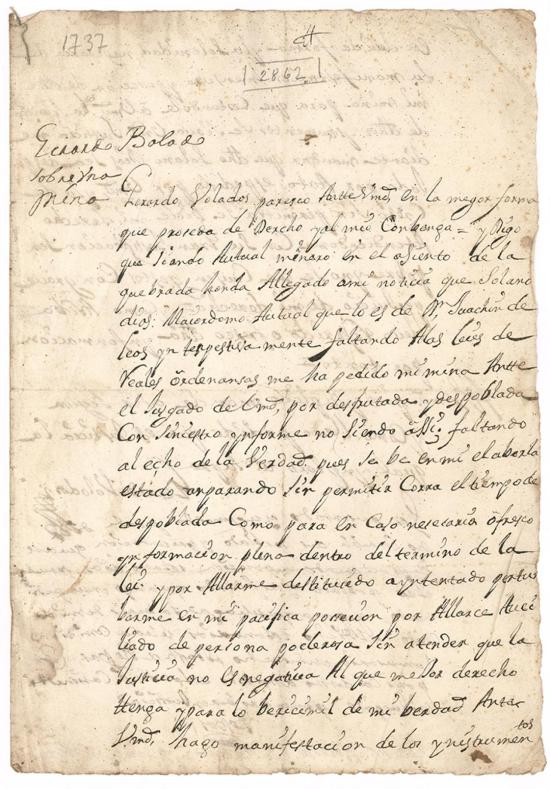 1737
2862
Gerardo Bolados
sobre una
mina
Gerardo Volados paresco Antte Vmd, en la megor forma
que proseda de Derecho y al mio Conbenga = y Digo
que siendo Autual minero en el asiento de la
quebrada honda Allegado a mi noticia que Solano
dias. Maiordomo Autual que lo es de Dn Juachin de
leos yntespestiva mente faltando Alas leies de
Reales ordenansas me ha pedido mi mina Antte
el Jusgado de Vmd, por desfrutada y despoblada
Con siniestro ynforme no siendo assi; faltando
al echo de la Verdad pues se be en mi el aberla
estado amparando sin permitir Corra el tiempo de
despoblada Como para en Caso nesesario ofresco
ynformacion plena dentro del termino de la
lei y por Allarme destituido a yntentado pertur
barme en mi pacifica posecion por Allarce Auci
liado de persona poderosa sin atender que la
Justicia no es negativa Al que mejor derecho
ttenga y para lo bericimil de mi berdad Antte
Vmd, hago manifestacion de los ynistrumentos